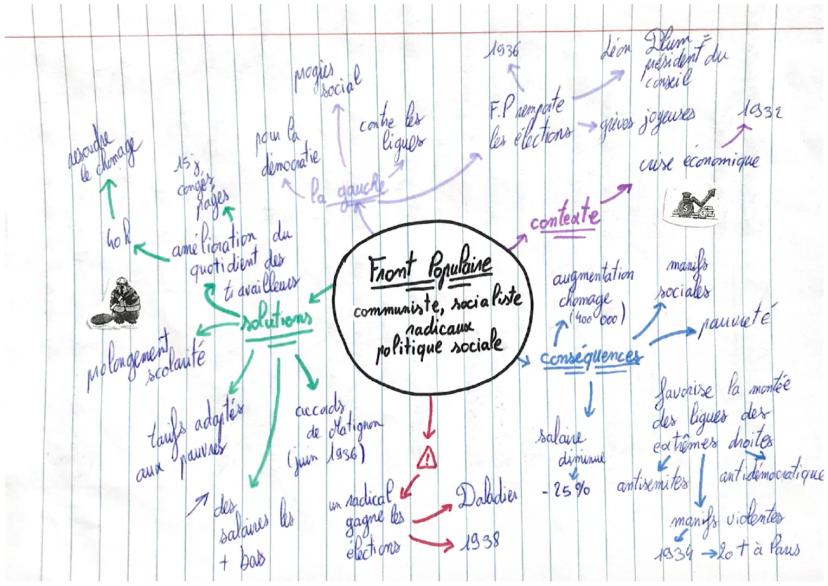 Front Populaire
communiste, socialiste
radicaux
politique sociale
la gauche
pour la
démocratie
progrès
social
contre les
ligues
F.P remporte
les élections
1936
Léon Blum =
président du
conseil
grèves joyeuses
contexte
crise économique
1932
conséquences
augmentation
chomage
(400 000)
manifs
sociales
pauvreté
salaire
diminue
-25%
favorise la montée
des ligues des
extrêmes droites
antisemites
antidémocratique
manifs violentes
1934 → 20 † à Paris
un radical
gagne les
élections
Daladier
1938
solutions
amélioration du
quotidient des
travailleurs
15j
congés
payés
40h
resoudre
le chomage
prolongement
scolarité
tarifs adaptés
aux pauvres
↗ des
salaires les
+ bas
accords
de Matignon
(juin 1936)